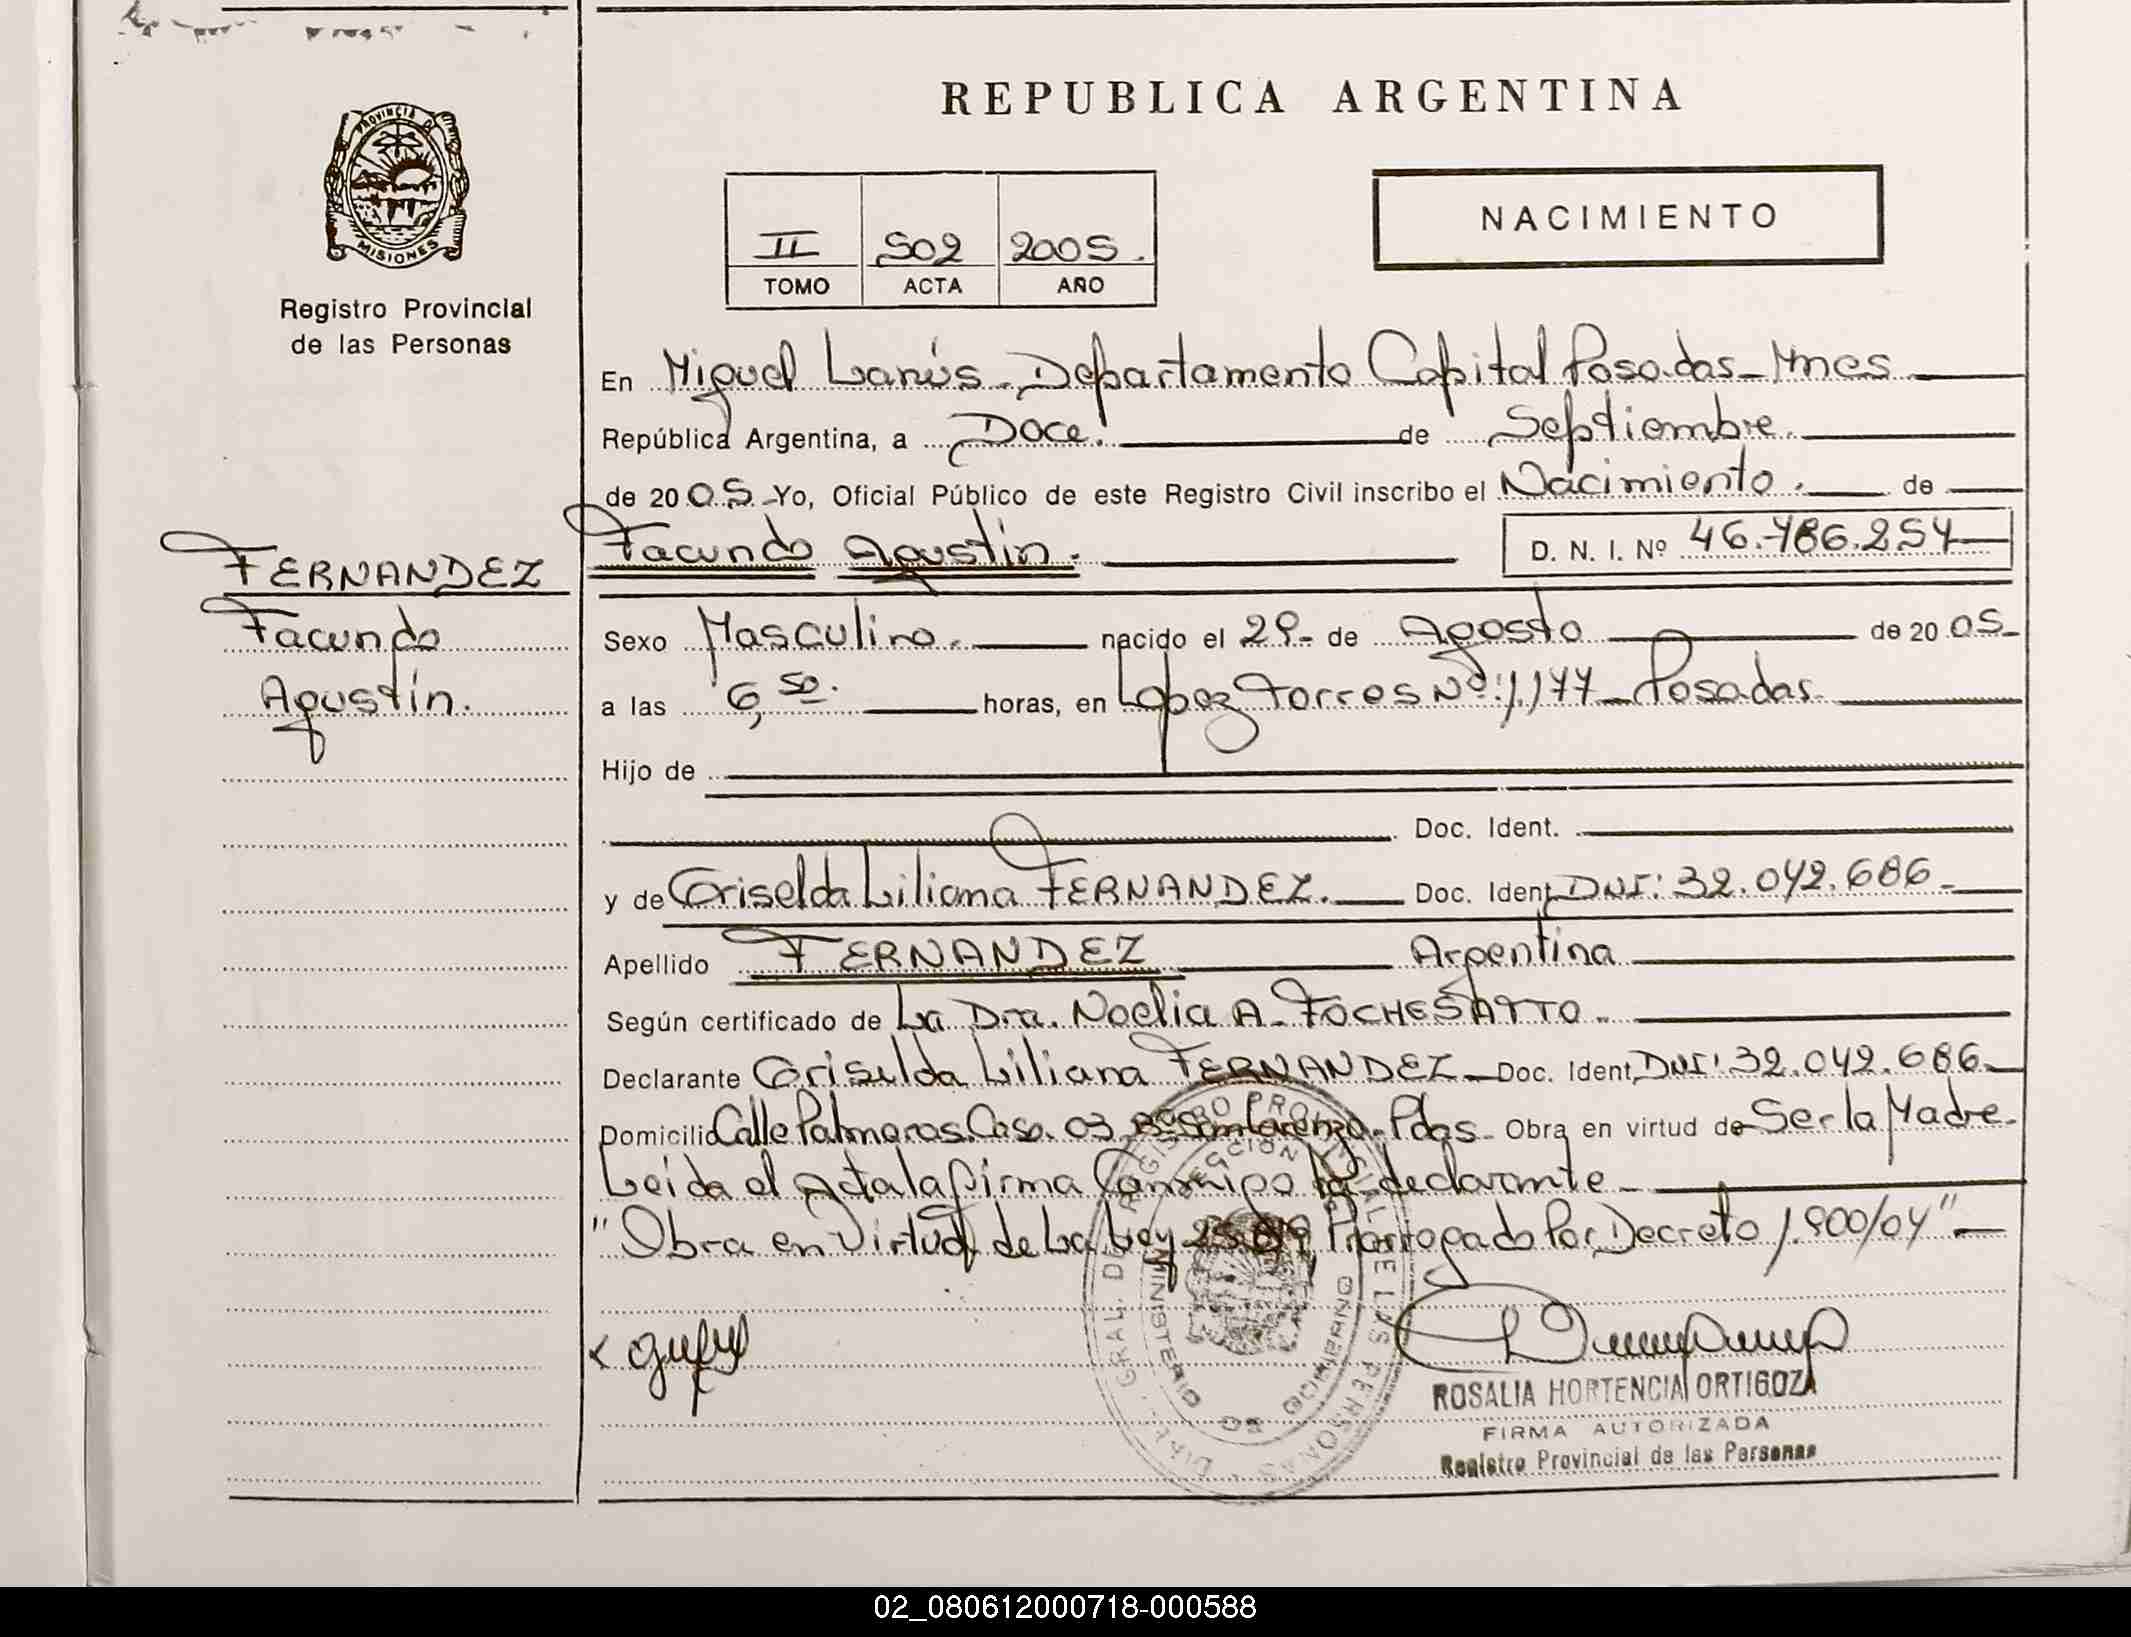 REPUBLICA ARGENTINA
PROVINCIA DE
MISIONES
Registro Provincial
de las Personas
II 502 2005.
TOMO ACTA AÑO
NACIMIENTO
En Miguel Lanús - Departamento Capital Posadas - Mnes
República Argentina, a Doce. de Septiembre.
de 2005. Yo, Oficial Público de este Registro Civil inscribo el Nacimiento. de
Facundo Agustin. D. N. I. Nº 46.786.254
FERNANDEZ
Facundo
Agustín.
Sexo Masculino. nacido el 29- de Agosto de 2005-
a las 6,50. horas, en Lopez Torres Nº: 1.177 - Posadas.
Hijo de
Doc. Ident.
y de Griselda Liliana FERNANDEZ. Doc. Ident. DNI: 32.042.686-
Apellido FERNANDEZ Argentina
Según certificado de La Dra. Noelia A. FOCHESATTO.
Declarante Griselda Liliana FERNANDEZ - Doc. Ident. DNI: 32.042.686-
Domicilio Calle Palmeras. Casa. 03 Bº San Lorenzo - Pdas - Obra en virtud de Ser la Madre.
Leida el Acta la firma Conmigo la declarante
"Obra en Virtud de La Ley Prorrogado Por Decreto 1.900/04"
DIREC. GRAL. DEL REGISTRO PROVINCIAL DE LAS PERSONAS
MINISTERIO DE GOBIERNO
ROSALIA HORTENCIA ORTIGOZA
FIRMA AUTORIZADA
Registro Provincial de las Personas
02_080612000718-000588